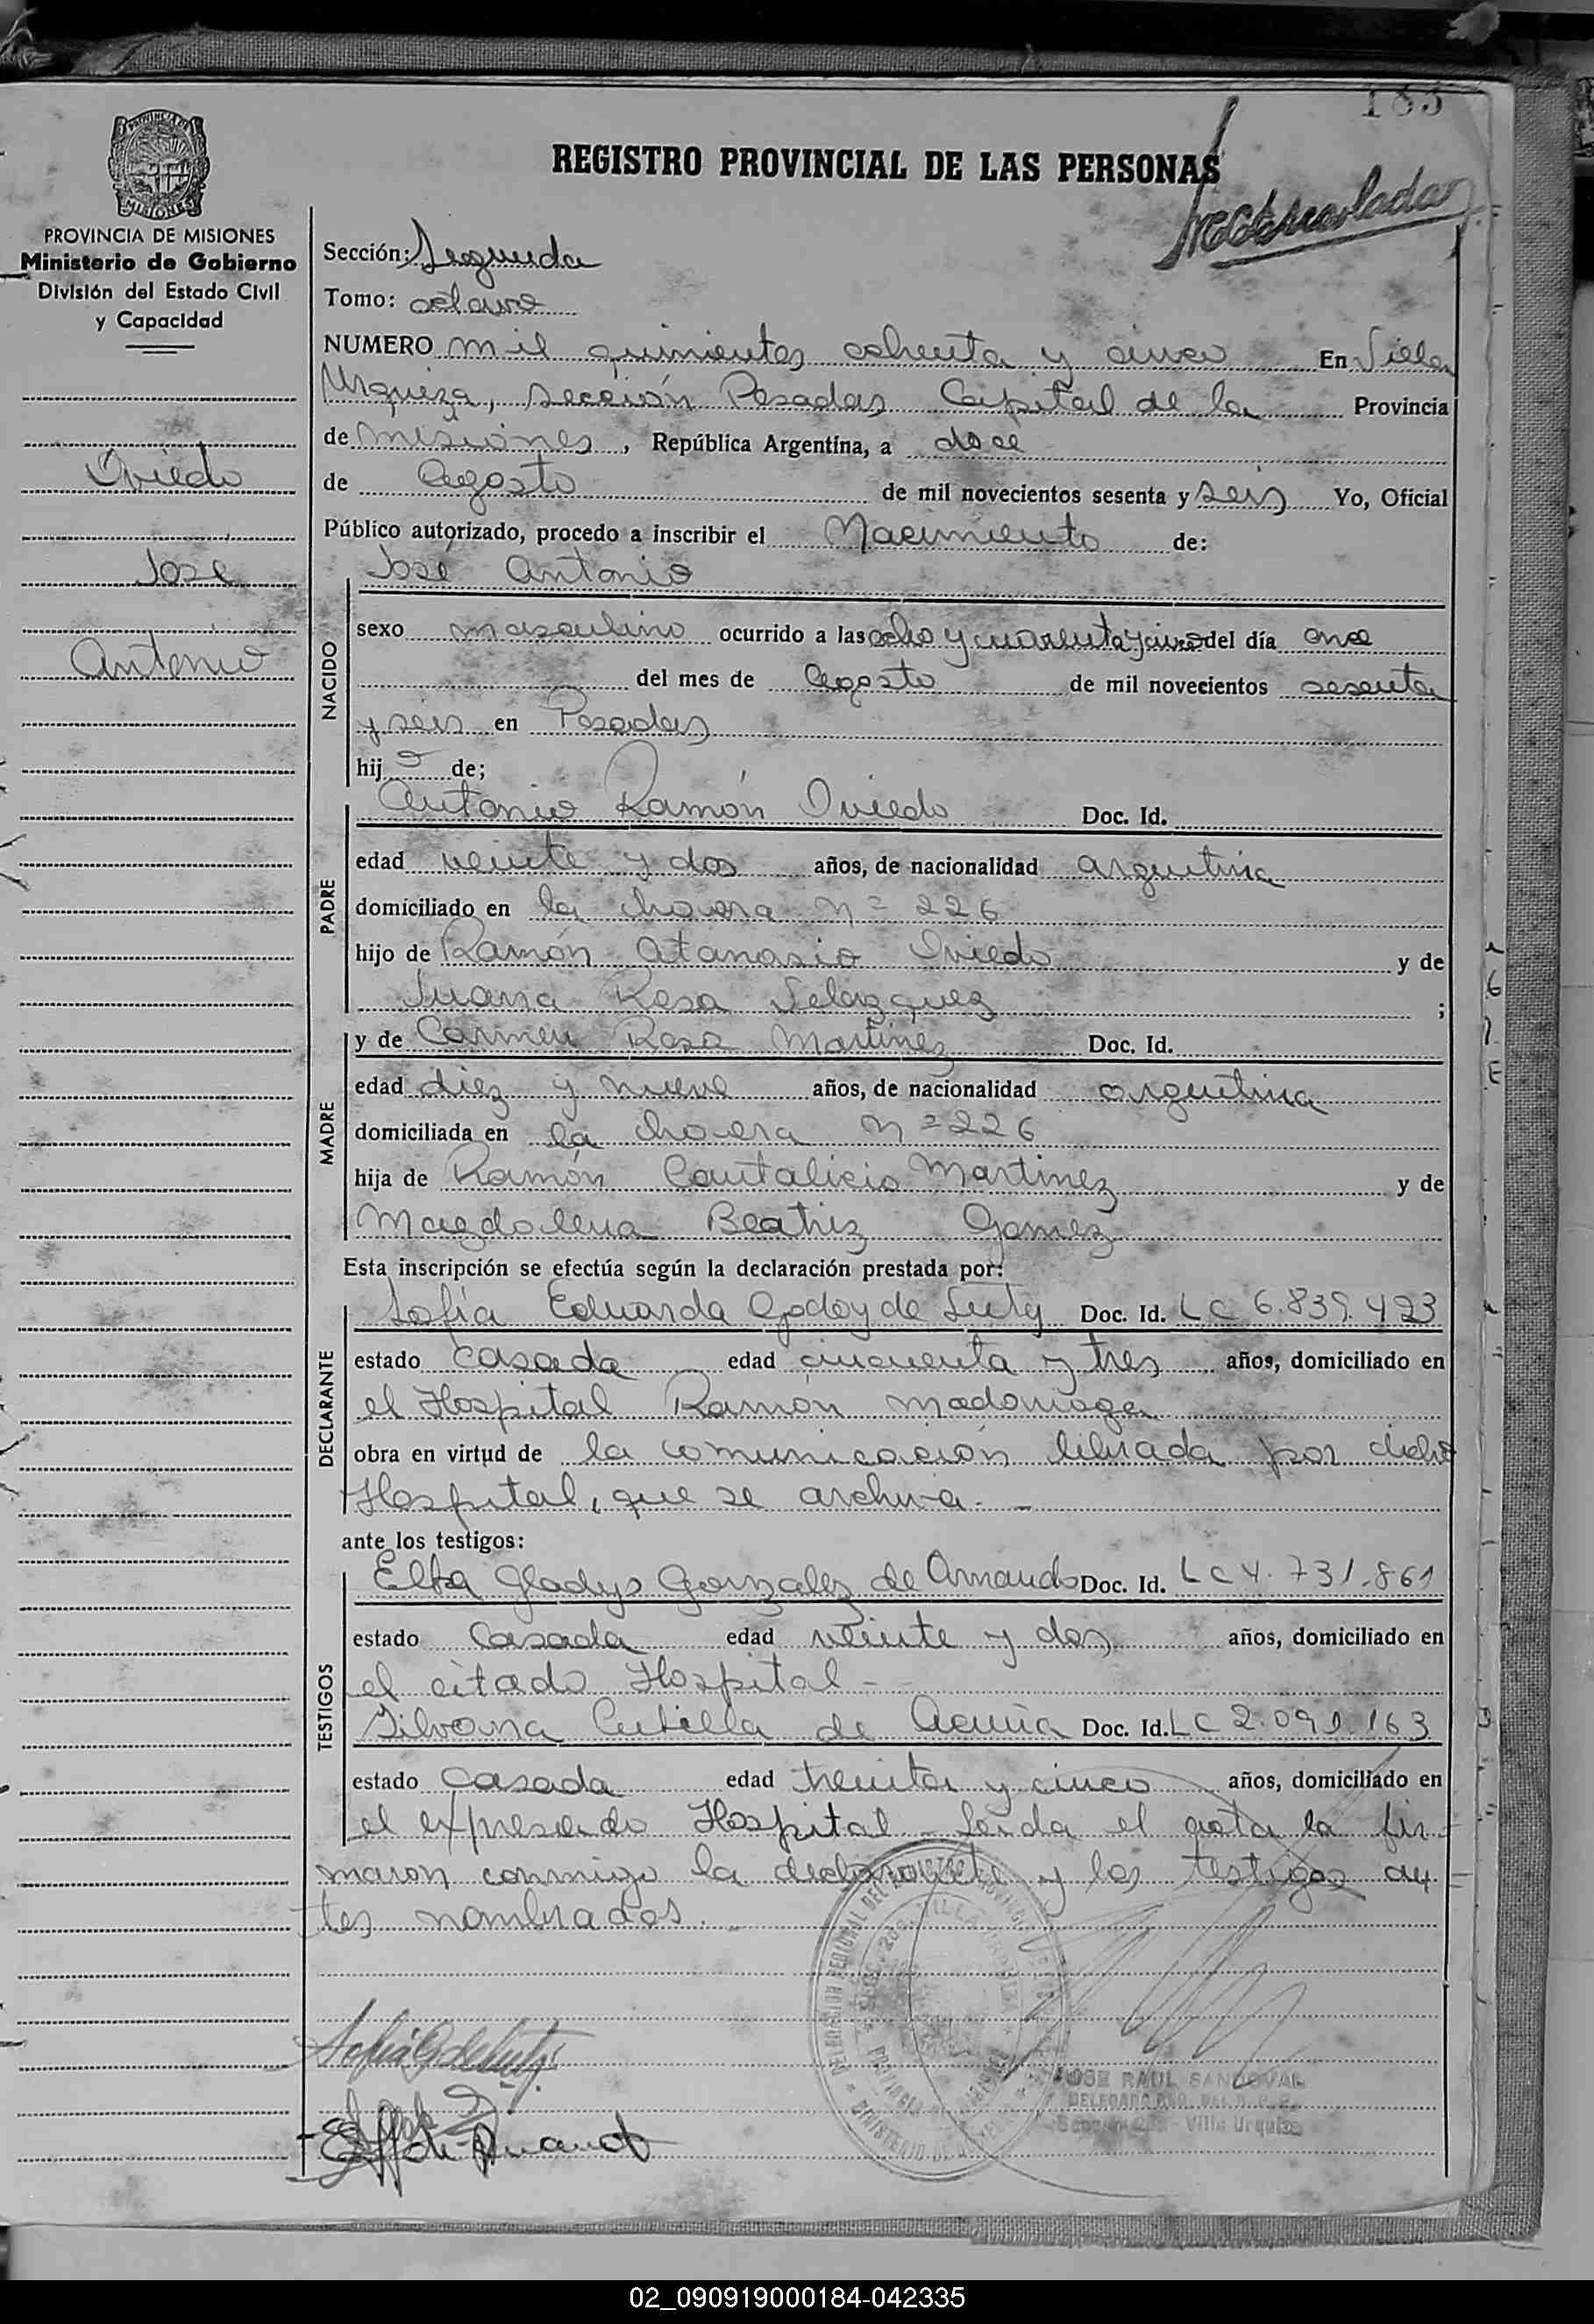 185
REGISTRO PROVINCIAL DE LAS PERSONAS
PROVINCIA DE MISIONES
Ministerio de Gobierno
División del Estado Civil
y Capacidad
Oviedo
José
Antonio
Sección: Segunda
Tomo: octavo
NUMERO mil quinientos ochenta y cinco En Villa
Urquiza, sección Posadas Capital de la Provincia
de misiones, República Argentina, a doce
de Agosto de mil novecientos sesenta y seis Yo, Oficial
Público autorizado, procedo a inscribir el Nacimiento de:
José Antonio
NACIDO
sexo masculino ocurrido a las ocho y cuarenta y cinco del día once
del mes de Agosto de mil novecientos sesenta
y seis en Posadas
hijo de;
Antonio Ramón Oviedo Doc. Id.
PADRE
edad veinte y dos años, de nacionalidad argentina
domiciliado en la chacra n= 226
hijo de Ramón Atanasio Oviedo y de
Juana Rosa Velazquez ;
y de Carmen Rosa Martinez Doc. Id.
MADRE
edad diez y nueve años, de nacionalidad argentina
domiciliada en la chacra n= 226
hija de Ramón Cantalicio Martinez y de
Magdalena Beatriz Gomez
Esta inscripción se efectúa según la declaración prestada por:
Sofía Eduarda Godoy de Doc. Id. LC 6.839.423
DECLARANTE
estado casada edad cincuenta y tres años, domiciliado en
el Hospital Ramón Madariaga
obra en virtud de la comunicación librada por dicho
Hospital, que se archiva.
ante los testigos:
Elba Gladys Gonzalez de Armando Doc. Id. LC 4.731.861
TESTIGOS
estado Casada edad veinte y dos años, domiciliado en
el citado Hospital
Silvana de Acuña Doc. Id. LC 2.091.163
estado Casada edad treinta y cinco años, domiciliado en
el expresado Hospital Leida el acta la fir-
maron conmigo la declarante y los testigos an
tes nombrados.
JOSE RAUL SANDOVAL
Villa Urquiza
02_090919000184-042335